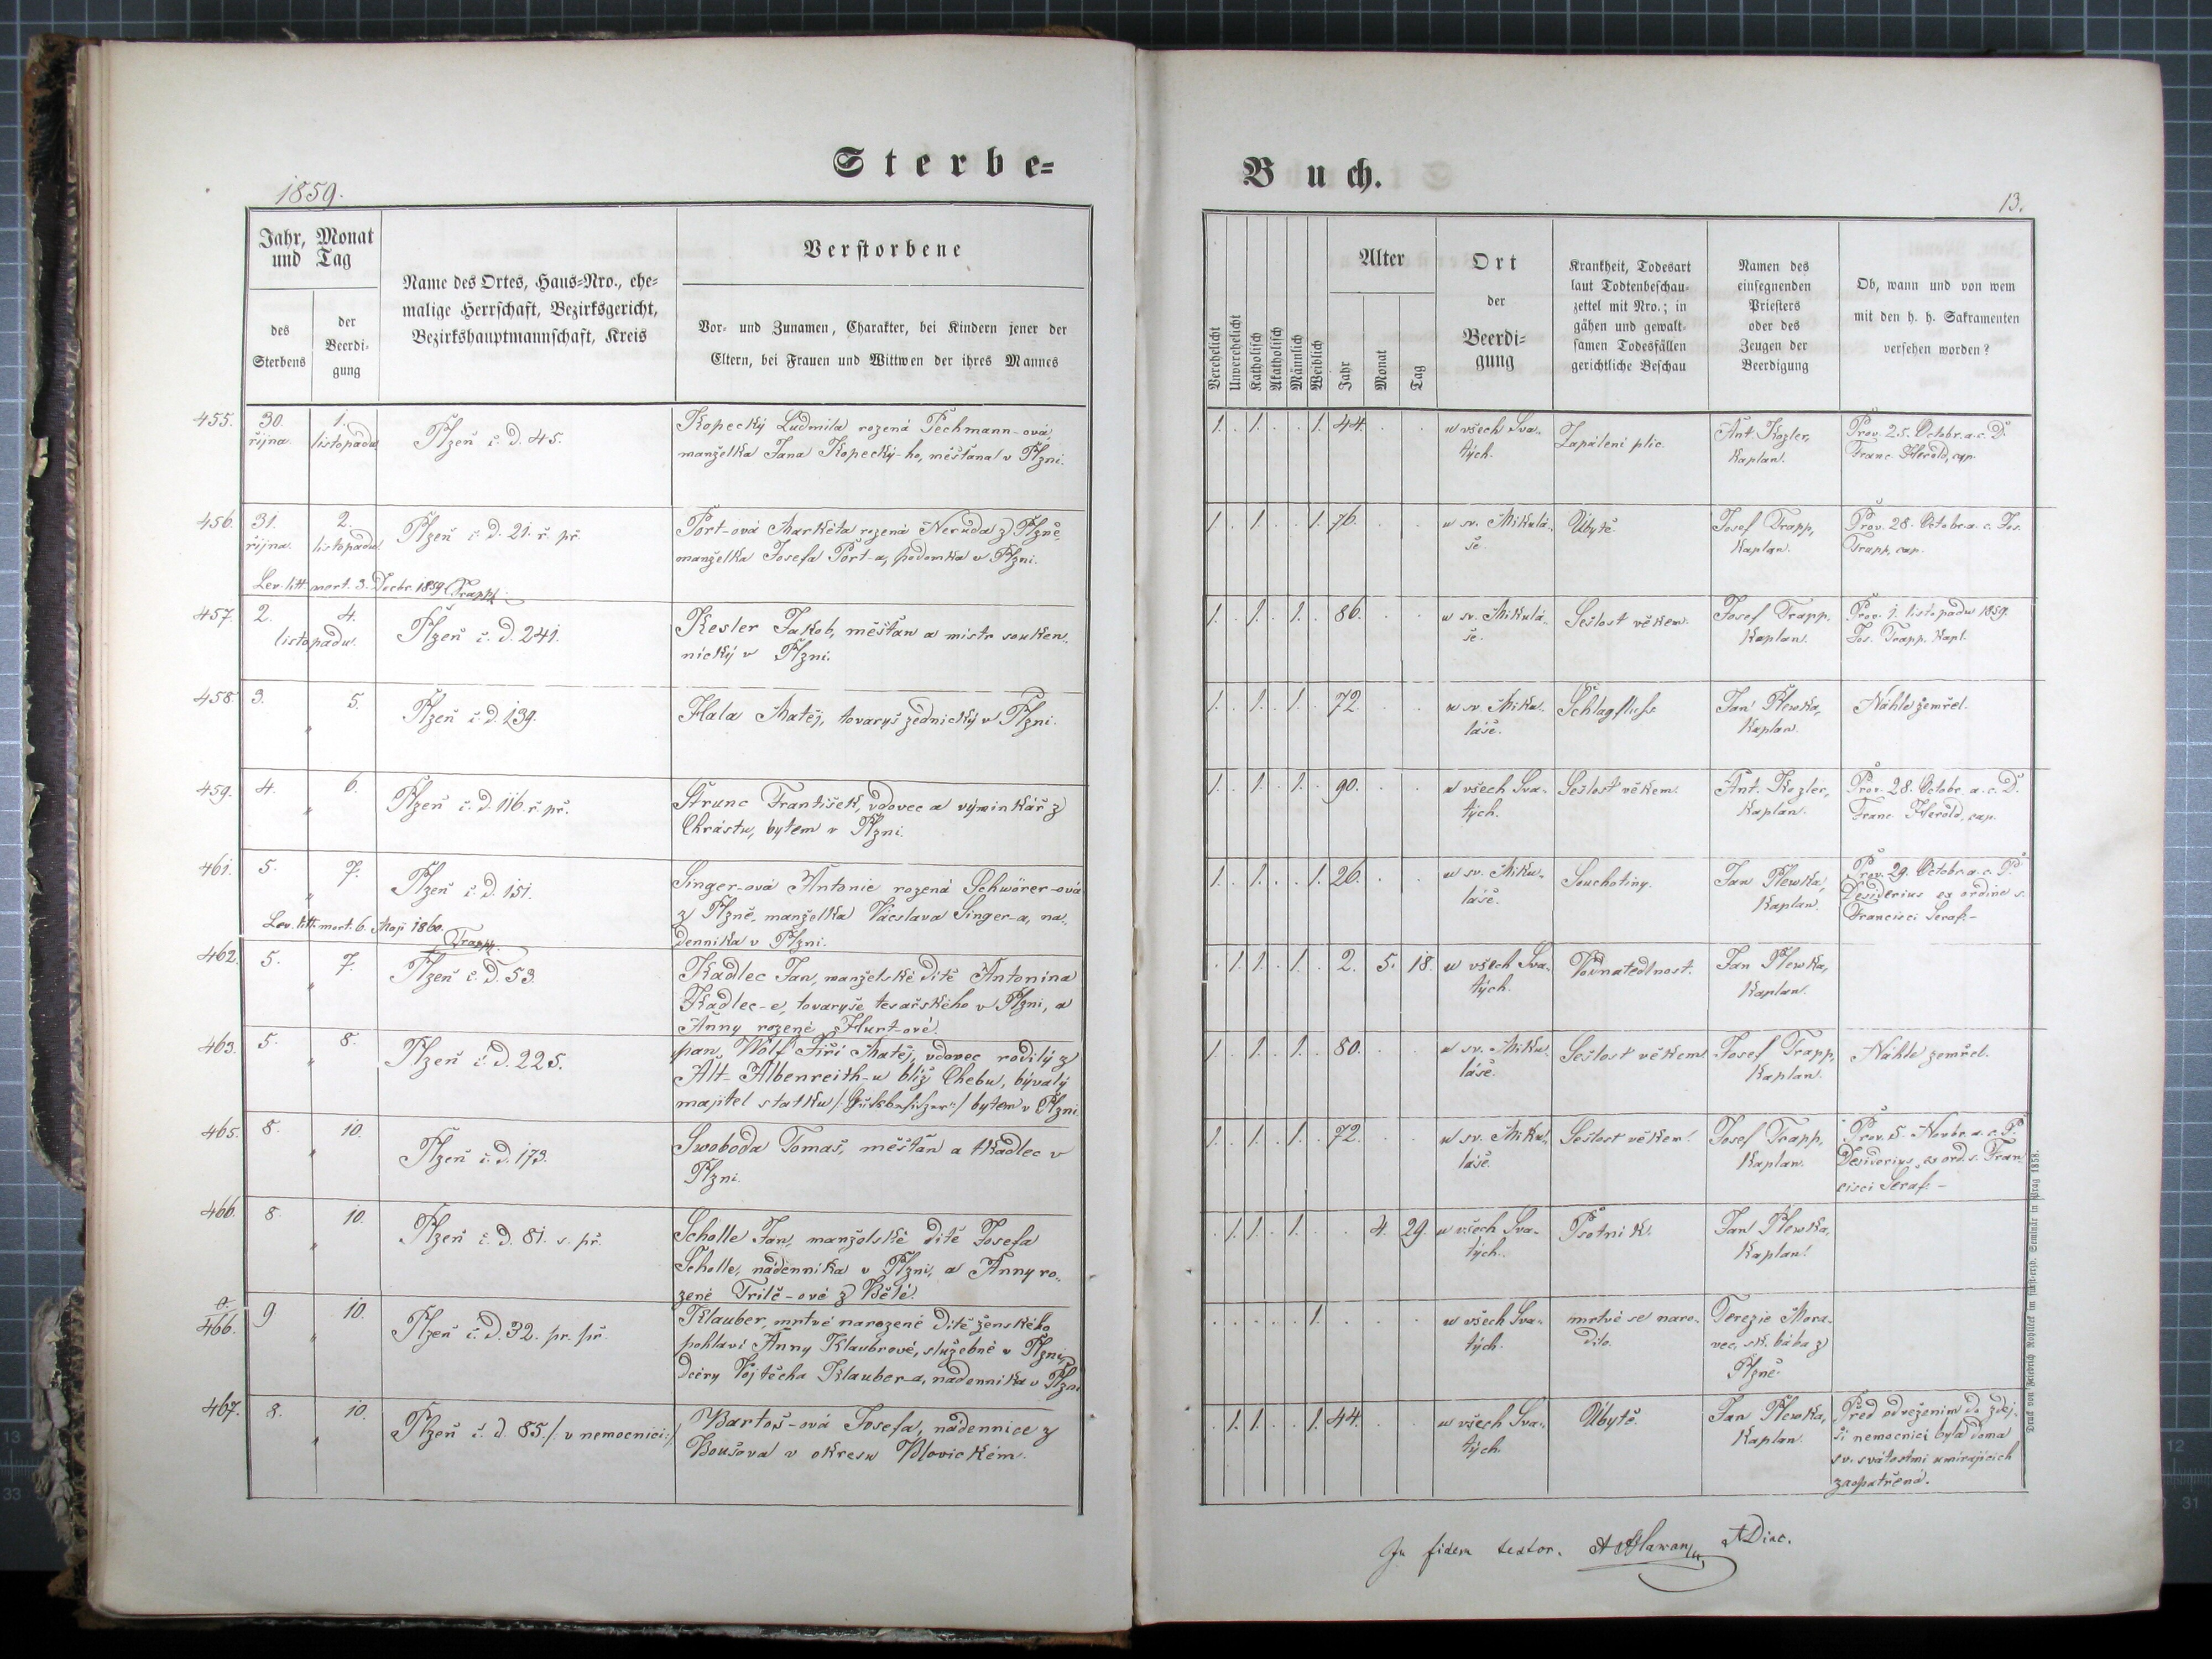 Sterbe-
1859.
Jahr, Monat
und Tag
des
Sterbens
der
Beerdi-
gung
Name des Ortes, Haus-Nro., ehe-
malige Herrschaft, Bezirksgericht,
Bezirkshauptmannschaft, Kreis
Verstorbene
Vor- und Zunamen, Charakter, bei Kindern jener der
Eltern, bei Frauen und Wittwen der ihres Mannes
455. 30. 1. Plzeň č. D. 45. Kopecký Ludmila rozená Pechmann-ová,
října listopadu manželka Jana Kopecký-ho, měšťana v Plzni.
456. 31. 2. Plzeň č. D. 21. ř. př. Port-ová Markéta rozená Neruda z Plzně,
října. listopadu manželka Josefa Port-a, podomka v Plzni.
Lev. litt. mort. 3. Decbr. 1859. Trapp
457. 2. 4. Plzeň č. D. 241. Kesler Jakob, měšťan a mistr souken-
listopadu. nický v Plzni.
458. 3. 5. Plzeň č. D. 139. Hala Matěj, tovaryš zednický v Plzni.
"
459. 4. 6. Plzeň č. D. 116. ř. př. Strunc František, vdovec a výminkář z
" Chrástu, bytem v Plzni.
461. 5. 7. Plzeň č. D. 151. Singer-ová Antonie rozená Schwörer-ová
" z Plzně, manželka Václava Singer-a, ná-
Lev. litt. mort. 6. Maji 1860. Trapp. denníka v Plzni.
462. 5. 7. Plzeň č. D. 53. Kadlec Jan, manželské dítě Antonína
" Kadlec-e, tovaryše tesařského v Plzni, a
Anny rozené Hurt-ové.
463. 5. 8. Plzeň č. D. 225. pan Wolf Jiří Matěj, vdovec rodilý z
" Alt-Albenreith-u blíž Chebu, bývalý
majitel statku /:Gutsbesitzer:/ bytem v Plzni
465. 8. 10. Plzeň č. D. 173. Swoboda Tomáš, měšťan a tkadlec v
" Plzni.
466. 8. 10. Plzeň č. D. 81. s. př. Scholle Jan, manželské dítě Josefa
" Scholle, nádenníka v Plzni, a Anny ro-
zené Trilč-ové z Bělé.
a.
466. 9 10. Plzeň č. D. 32. pr. př. Klauber, mrtvě narozené dítě ženského
" pohlaví Anny Klaubrové, služebné v Plzni,
dcery Vojtěcha Klauber-a, nádenníka v Plzni
467. 8. 10. Plzeň č. D. 85 /: v nemocnici:/ Bartoš-ová Josefa, nádennice z
" Boušova v okresu Blovickém.
Buch.
13.
Verehelicht
Unverehelicht
Katholisch
Akatholisch
Männlich
Weiblich
Alter
Jahr
Monat
Tag
Ort
der
Beerdi-
gung
Krankheit, Todesart
laut Todtenbeschau-
zettel mit Nro.; in
gähen und gewalt-
samen Todesfällen
gerichtliche Beschau
Namen des
einsegnenden
Priesters
oder des
Zeugen der
Beerdigung
Ob, wann und von wem
mit den h. h. Sakramenten
versehen worden?
1. . 1. . . 1. 44. . . u všech Sva- Zapálení plic. Ant. Kozler, Prov. 25. Octobr. a. c. D.
tých. Kaplan. Franc. Herold, cap.
1. . 1. . . 1. 76. . . u sv. Mikulá- Úbytě. Josef Trapp, Prov. 28. Octobr. a. c. Jos.
še. Kaplan. Trapp, cap.
1. . 1. . 1. . 86. . . u sv. Mikulá- Sešlost věkem. Josef Trapp, Prov. 1. listopadu 1859.
še. Kaplan. Jos. Trapp. Kapl.
1. . 1. . 1. . 72. . . u sv. Miku- Schlagfluß. Jan Plewka, Náhle zemřel.
láše. Kaplan.
1. . 1. . 1. . 90. . . u všech Sva- Sešlost věkem. Ant. Kozler, Prov. 28. Octobr. a. c. D.
tých. Kaplan. Franc. Herold, cap.
1. . 1. . . 1. 26. . . u sv. Miku- Souchotiny. Jan Plewka, Prov. 29. Octobr. a. c. P.
láše. Kaplan. Desiderius ex ordine s.
Francisci Seraf.-
. 1. 1. . 1. . 2. 5. 18. u všech Sva- Vodnatedlnost. Jan Plewka,
tých. Kaplan.
1. . 1. . 1. . 80. . . u sv. Miku- Sešlost věkem. Josef Trapp, Náhle zemřel.
láše. Kaplan.
1. . 1. . 1. . 72. . . u sv. Miku- Sešlost věkem. Josef Trapp, Prov. 5. Novbr. a. c. P.
láše. Kaplan. Desiderius ex ord. s. Fran-
cisci Seraf.-
. 1. 1. . 1. . . 4. 29. u všech Sva- Psotník. Jan Plewka,
tých. Kaplan.
. . . . . 1. . . . u všech Sva- mrtvé se naro- Terezie Mora-
tých. dilo. vec, zk. bába z
Plzně.
. 1. 1. . . 1. 44. . . u všech Sva- Úbytě. Jan Plewka, Před odvežením do zdej-
tých. Kaplan. ší nemocnici byla doma
sv. svátostmi umírajících
zaopatřená.
Druck von Friedrich Rohliček im fürst-erzb. Seminär in Prag 1858.
In fidem testor.